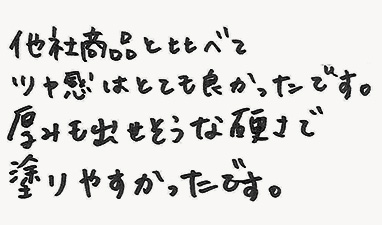 他社商品と比べて
ツヤ感はとても良かったです。
厚みも出せそうな硬さで
塗りやすかったです。